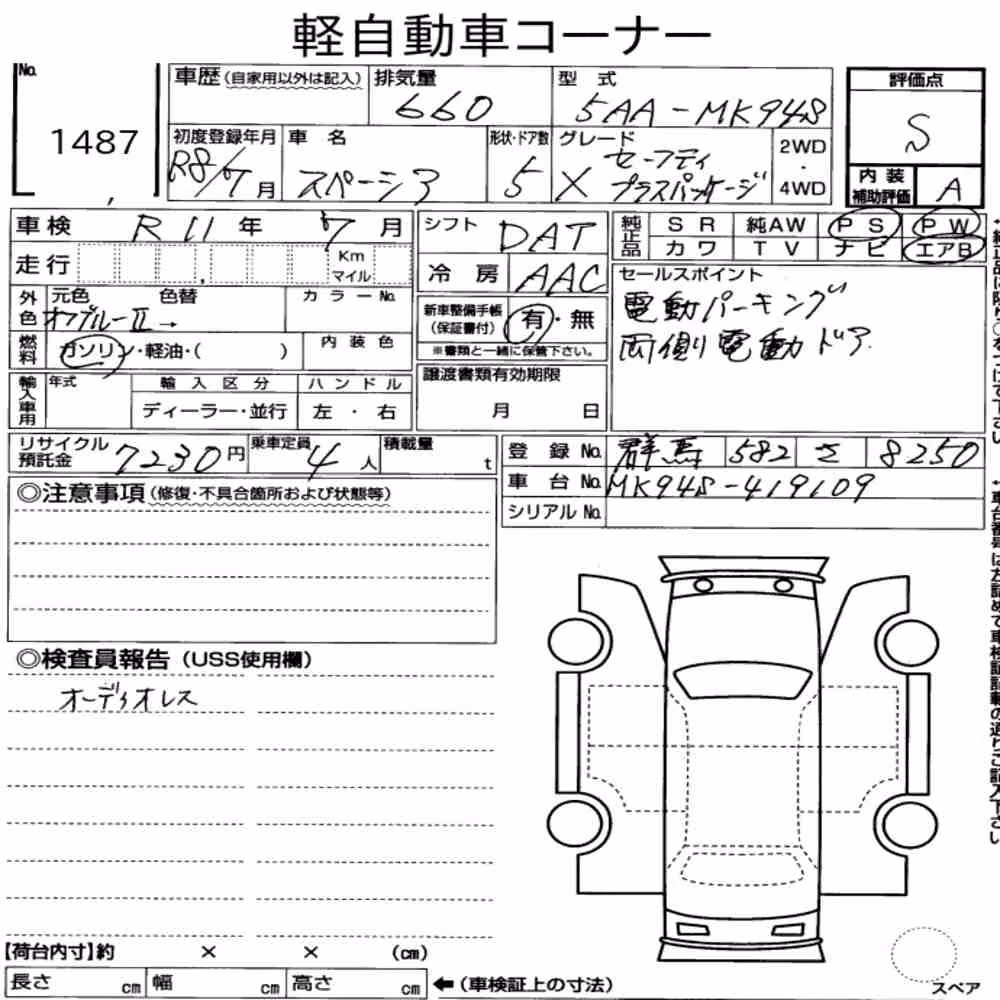 軽自動車コーナー
No. 1487
車歴(自家用以外は記入)
排気量 660
型式 5AA-MK94S
評価点 S
初度登録年月 R8/7月
車名 スペーシア
形状・ドア数 5
グレード X セーフティプラスパッケージ
2WD・4WD
内装補助評価 A
車検 R11年 7月
シフト DAT
純正品 SR 純AW PS PW
カワ TV ナビ エアB
走行 Km マイル
冷房 AAC
セールスポイント
電動パーキング
両側電動ドア
外色 元色 色替 カラーNo.
オフブルーⅡ→
新車整備手帳(保証書付) 有・無
※書類と一緒に保管下さい。
燃料 ガソリン・軽油・( ) 内装色
輸入車用 年式 輸入区分 ハンドル
ディーラー・並行 左・右
譲渡書類有効期限
月 日
リサイクル預託金 7230円
乗車定員 4人
積載量 t
登録No. 群馬 582 さ 8250
車台No. MK94S-419109
シリアルNo.
◎注意事項(修復・不具合箇所および状態等)
◎検査員報告(USS使用欄)
オーディオレス
【荷台内寸】約 × × (cm)
長さ cm 幅 cm 高さ cm ←(車検証上の寸法)
スペア